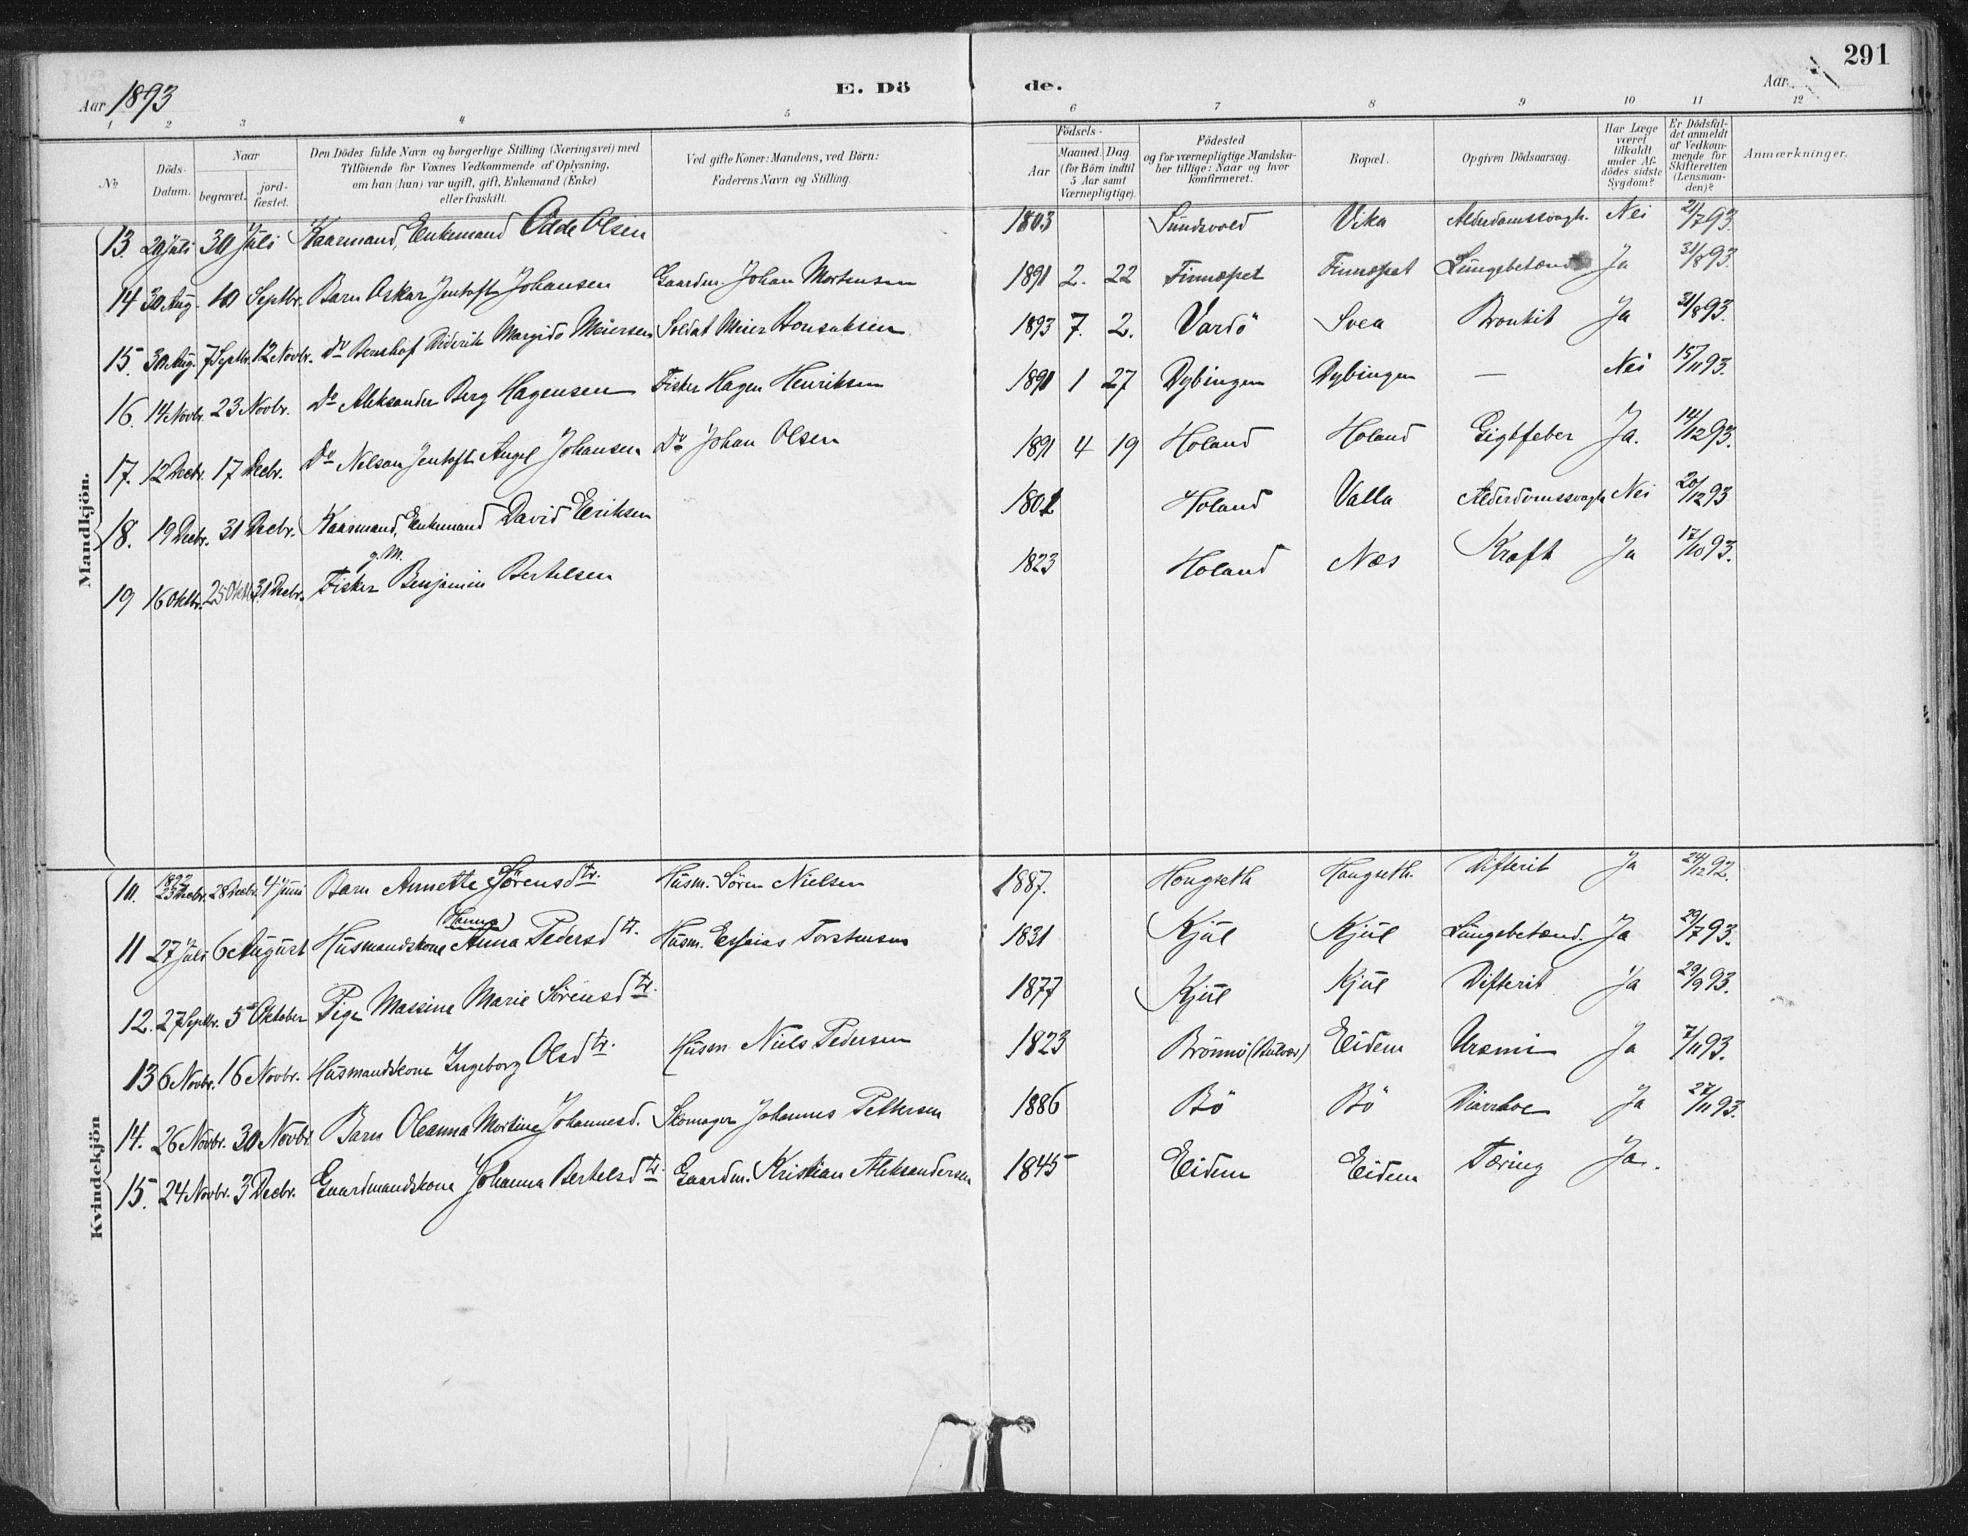 Aar 1893 E. Dö de. Aar 291
1 2 3 4 5 6 7 8 9 10 11 12
No. Döds-Datum. Naar begravet. jord-fæstet. Den Dödes fulde Navn og borgerlige Stilling (Næringsvei) med Tilföiende for Voxnes Vedkommende af Oplysning, om han (hun) var ugift, gift, Enkemand (Enke) eller fraskilt. Ved gifte Koner: Mandens, ved Börn: Faderens Navn og Stilling. Födsels- Aar Maaned. Dag (for Börn indtil 5 Aar samt Værnepligtige). Födested og for værnepligtige Mandska-ber tillige: Naar og hvor konfirmeret. Bopæl. Opgiven Dödsaarsag. Har Læge været tilkaldt under Af-dödes sidste Sygdom? Er Dödsfal-det anmeldt af Vedkom-mende for Skifteretten (Lensman-den)? Anmærkninger.
Mandkjön.
13. 20 Juli 30 Juli Kaarmand, Enkemand Odde Olsen 1803 Sundsvold Vika Alderdomssvagh. Nei 21/7 93.
14 30 Aug. 10 Septbr. Barn Oskar Jentoft Johansen Gaardm. Johan Mortensen 1891 2. 22 Finnæset Finnæset Lungebetænd Ja 31/8 93.
15. 30 Aug. 7 Septbr. 12 Novbr. Do Bernhof Diderik Margido Meiersen Soldat Meier 1893 7. 2. Vardö Svea Bronkit Ja 31/8 93.
16. 14 Novbr. 23 Novbr. Do Aleksander Berg Hagensen Fisker Hagen Henriksen 1891 1 27 Dybingen Dybingen — Nei 15/11 93.
17. 12 Decbr. 17 Decbr. Do Nelson Jentoft Angel Johansen Do Johan Olsen 1891 4 19 Holand Holand Gigtfeber Ja. 14/12 93.
18. 19 Decbr. 31 Decbr. Kaarmand, Enkemand David Eriksen 1801 Holand Valla Alderdomssvagh Nei 20/12 93
19 16 Oktbr. 25 Oktbr. 31 Decbr. g. M. Fisker Benjamin Bertelsen 1823 Holand Næs Kræft Ja 17/10 93.
Kvindekjön
10. 1892 23 Decbr. 28 Decbr. 4 Juni Barn Annette Sörensdtr. Husm. Sören Nielsen 1887. Hongseth Hongseth. Difterit Ja 24/12 92.
11 27 Juli 6 August Husmandskone (Hanna) Anna Pedersdtr. Husm. Esaias Torstensen 1831 Kjul Kjul Lungebetænd. Ja 29/7 93.
12. 27 Septbr. 5 Oktober Pige Massine Marie Sörensdtr. 1877 Kjul Kjul Difterit Ja 29/9 93.
13 6 Novbr. 16 Novbr. Husmandskone Ingeborg Olsdtr. Husm. Niels Pedersen 1823 Brönnö Eidem Uræmi Ja 7/11 93.
14. 26 Novbr. 30 Novbr. Barn Oleanna Mortine Johannesd. Skomager Johannes Pettersen 1886 Bö Bö Diarrhoe Ja 27/11 93.
15. 24 Novbr. 3 Decbr. Gaardmandskone Johanna Bertelsdtr. Gaardm. Kristian Aleksandersen 1845 Eidem Eidem Tæring Ja.